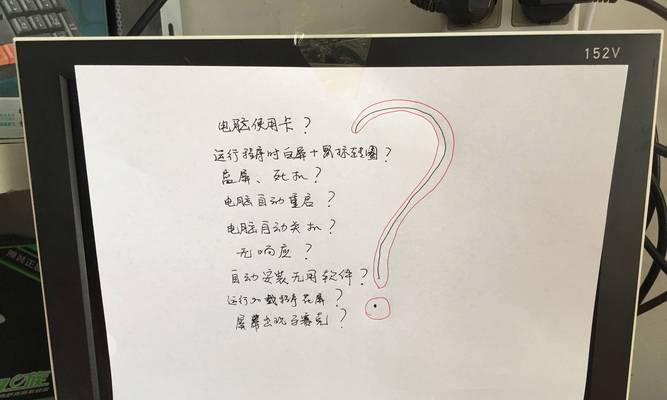 152V
电脑使用卡？
运行程序时白屏+鼠标转圈？
蓝屏、死机？
电脑自动重启？
电脑自动关机？
无响应？
自动安装无用软件？
运行加载程序花屏？
屏幕出现马赛克？